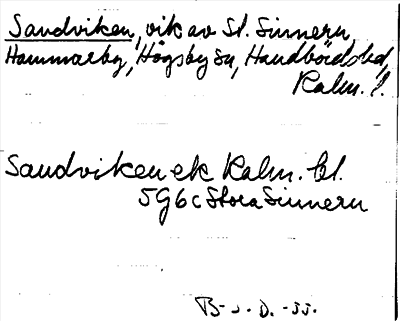 Sandviken, vik av St. Sinnern,
Hammarby, Högsby sn, Handbörds hd,
Kalm. l.
Sandviken ek Kalm. bl.
5G6c Stora Sinnern
D. -55.